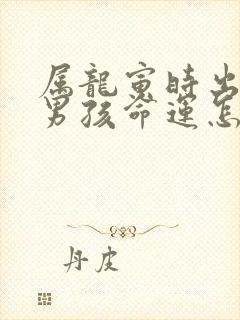 属龍寅時出
男孩命運怎
丹皮